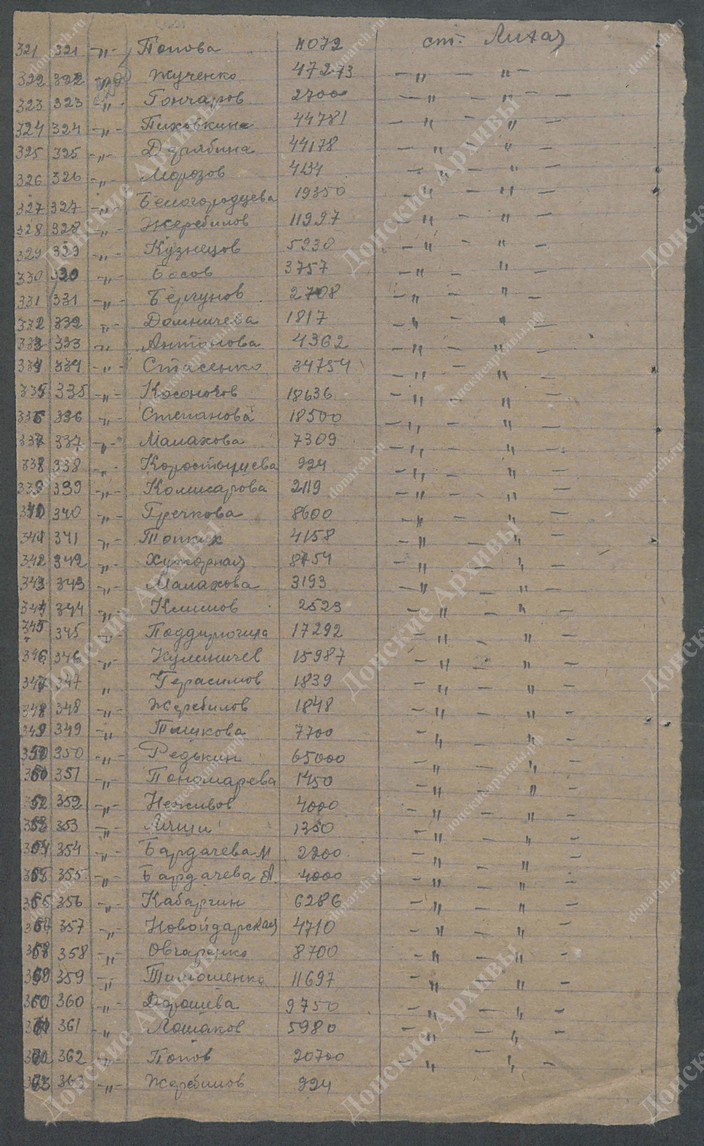 321 321 -„- Попова 4072 ст. Лихая
322 322 Жученко 47273 - „ - „ -
323 323 -„- Гончаров 2700 - „ - „ -
324 324 -„- Пиховкина 44781 - „ - „ -
325 325 -„- Дерябина 44178 - „ - „ -
326 326 -„- Морозов 4134 - „ - „ -
327 327 -„- Белогородцева 19350 - „ - „ -
328 328 -„- Жеребилов 11997 - „ - „ -
329 329 -„- Кузнецов 5230 - „ - „ -
330 330 -„- Басов 3757 - „ - „ -
331 331 -„- Бергунов 2708 - „ - „ -
332 332 -„- Домничева 1817 - „ - „ -
333 333 -„- Антонова 4362 - „ - „ -
334 334 -„- Стасенко 34754 - „ - „ -
335 335 -„- Косоногов 18636 - „ - „ -
336 336 -„- Степанова 18500 - „ - „ -
337 337 -„- Малахова 7309 - „ - „ -
338 338 -„- 924 - „ - „ -
339 339 -„- Комисарова 2119 - „ - „ -
340 340 -„- Гречкова 8600 - „ - „ -
341 341 -„- 4158 - „ - „ -
342 342 -„- Хуторная 8154 - „ - „ -
343 343 -„- Малахова 3193 - „ - „ -
344 344 -„- Климов 2523 - „ - „ -
345 345 -„- 17292 - „ - „ -
346 346 -„- Кулиничев 15987 - „ - „ -
347 347 -„- Герасимов 1839 - „ - „ -
348 348 -„- Жеребилов 1848 - „ - „ -
349 349 -„- 7700 - „ - „ -
350 350 -„- Редькин 65000 - „ - „ -
351 -„- Пономарева 1450 - „ - „ -
352 -„- Неживов 4000 - „ - „ -
353 -„- 1350 - „ - „ -
354 -„- Бардачева М 2200 - „ - „ -
355 -„- Бардачева А. 4000 - „ - „ -
356 -„- Кабаргин 6286 - „ - „ -
357 -„- Новойдарская 4710 - „ - „ -
358 -„- Овчаренко 8700 - „ - „ -
359 -„- Тимошенко 11697 - „ - „ -
360 360 -„- Дорошева 9750 - „ - „ -
361 -„- Лошаков 5980 - „ - „ -
362 -„- Попов 20700 - „ - „ -
363 -„- Жеребилов 924